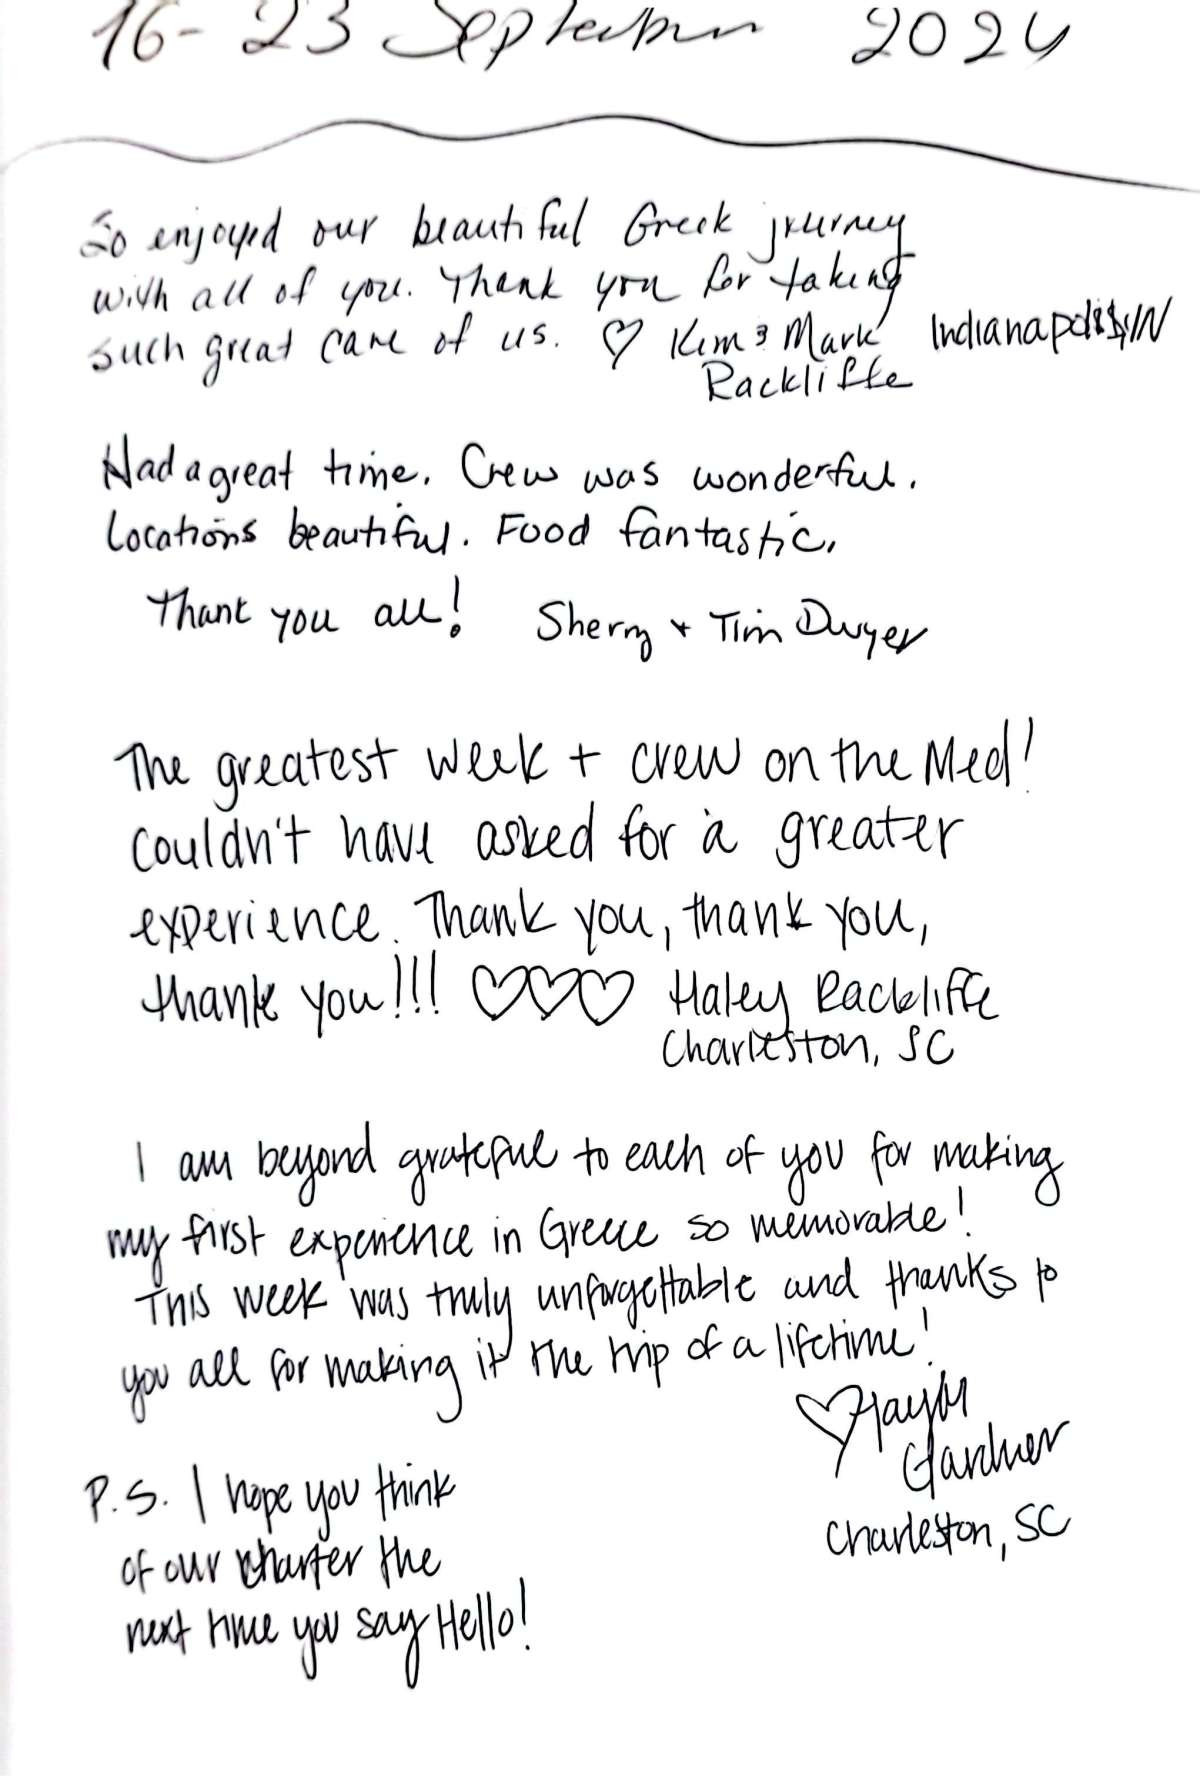 16-23 September 2024
So enjoyed our beautiful Greek journey
with all of you. Thank you for taking
such great care of us. ♡ Kim & Mark Indianapolis, IN
Rackliffe
Had a great time. Crew was wonderful.
Locations beautiful. Food fantastic.
Thank you all! Sherry + Tim Dwyer
The greatest week + crew on the Med!
Couldn't have asked for a greater
experience. Thank you, thank you,
thank you!!! ♡♡♡ Haley Rackliffe
Charleston, SC
I am beyond grateful to each of you for making
my first experience in Greece so memorable!
This week was truly unforgettable and thanks to
you all for making it the trip of a lifetime!
♡ Gardner
Charleston, SC
P.S. I hope you think
of our charter the
next time you say Hello!